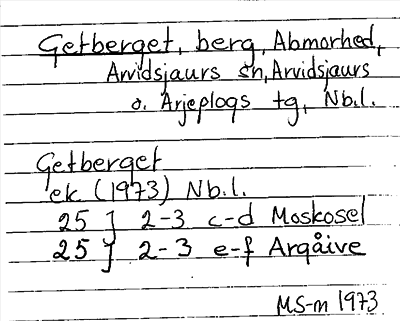 Getberget, berg, Abmorhed,
Arvidsjaurs sn, Arvidsjaurs
o. Arjeplogs tg, Nb.l.
Getberget
ek. (1973) Nb.l.
25 J 2-3 c-d Moskosel
25 J 2-3 e-f Argåive
MS-m 1973